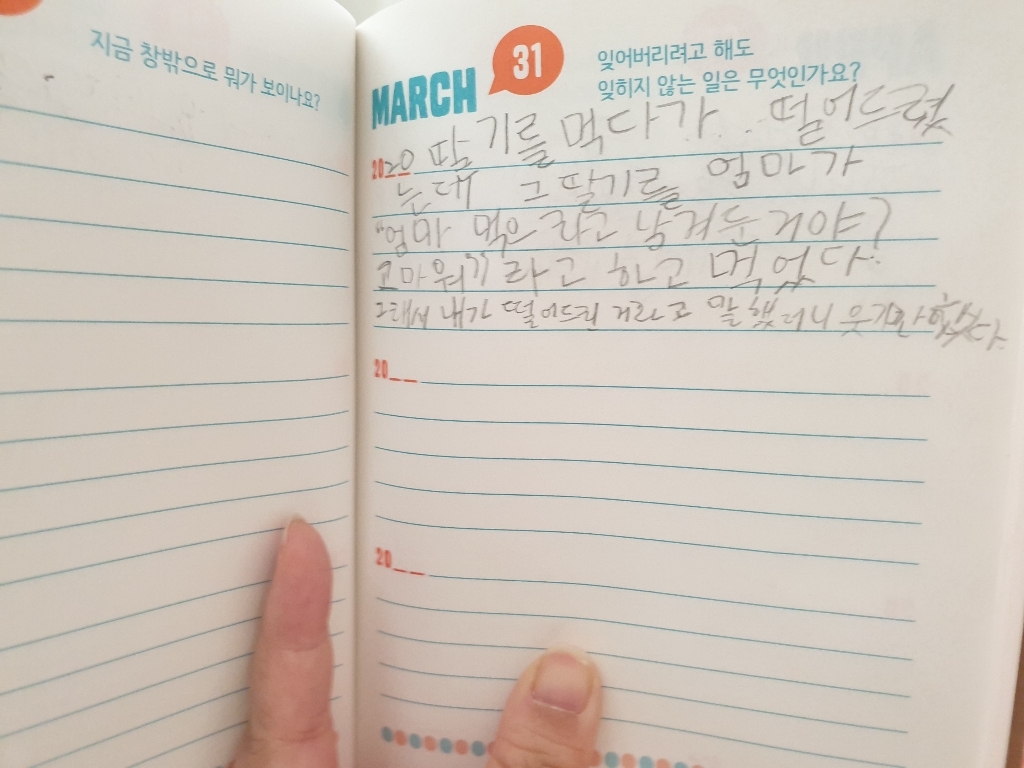 지금 창밖으로 뭐가 보이나요?
MARCH 31
잊어버리려고 해도
잊히지 않는 일은 무엇인가요?
2020 딸기를 먹다가 떨어드렸
는데 그 딸기를 엄마가
"엄마 먹으라고 남겨둔거야?
고마워"라고 하고 먹었다.
그래서 내가 떨어드린 거라고 말했더니 웃기만 했다.
20__
20__